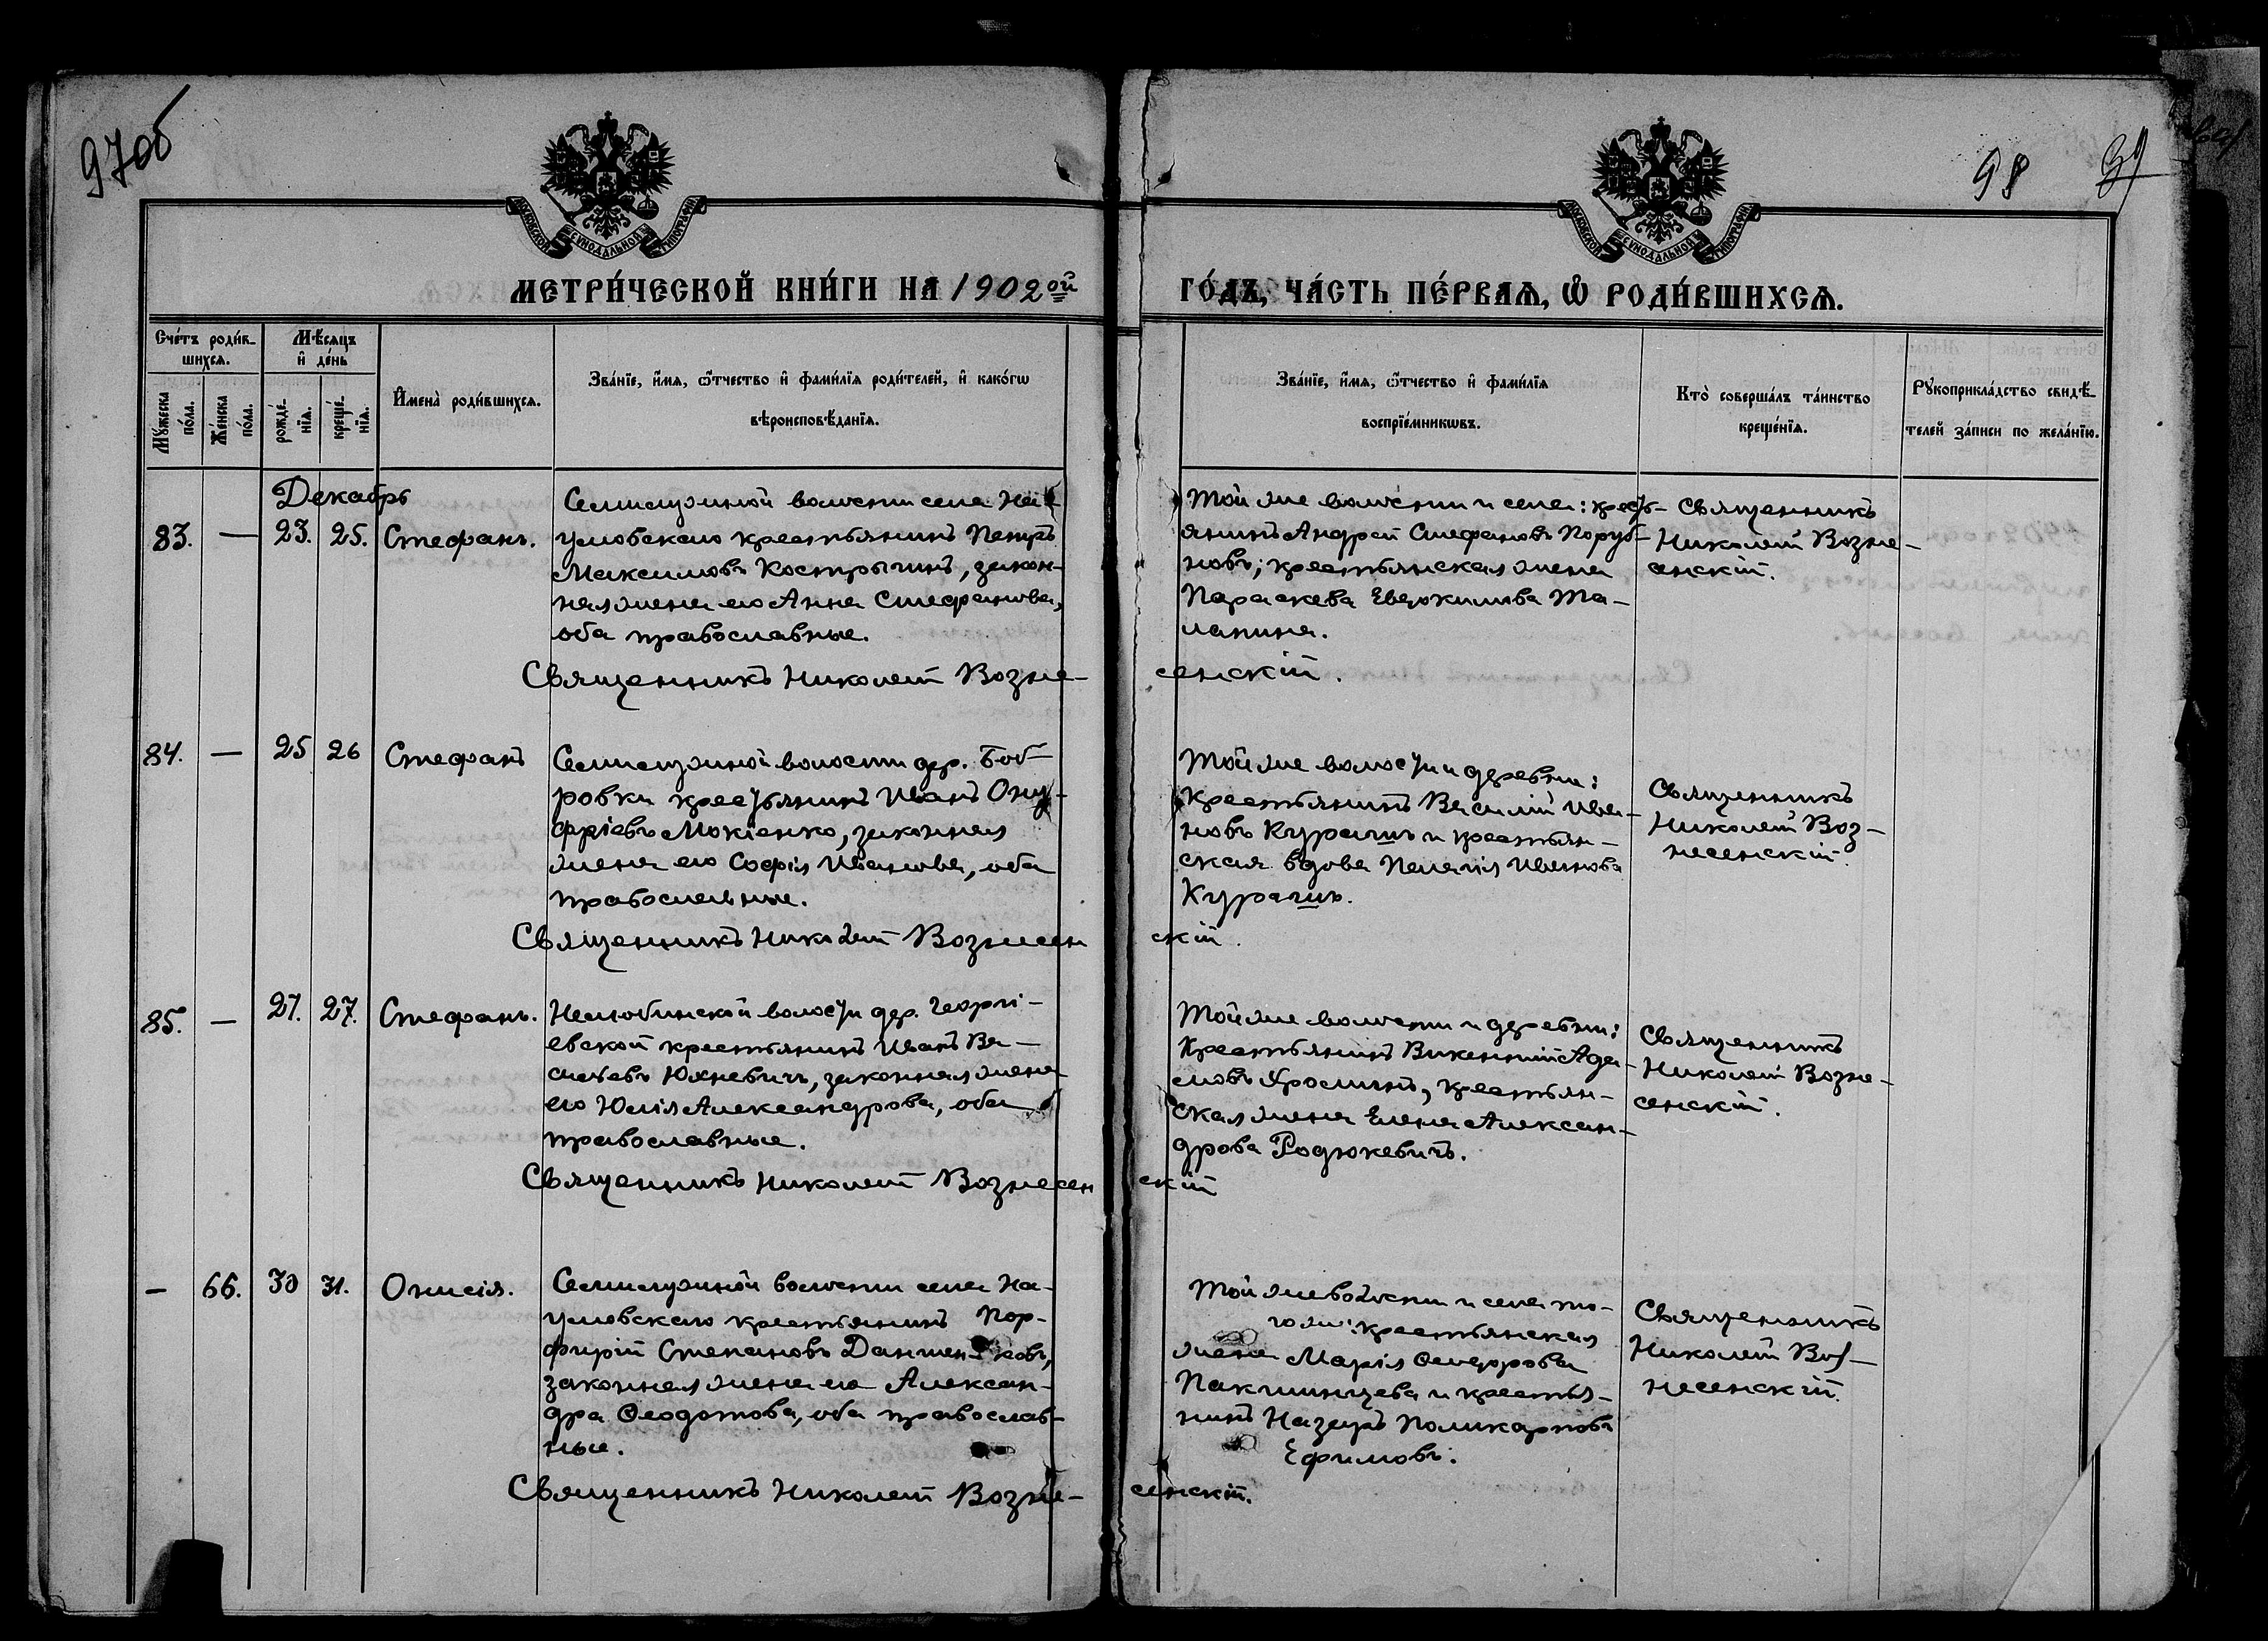 97об
98
МОСКОВСКОЙ СѴНОДАЛЬНОЙ ТИПОГРАФІИ
МОСКОВСКОЙ СѴНОДАЛЬНОЙ ТИПОГРАФІИ
МЕТРИ́ЧЕСКОЙ КНИ́ГИ НА 1902ой
ГО́ДЪ, ЧА́СТЬ ПЕ́РВАЯ, Ѽ РОДИ́ВШИХСЯ.
Сче́тъ роди́в-
шихся.
Му́жеска
по́ла.
Же́нска
по́ла.
Мѣ́сяцъ
и҆ де́нь
рожде́-
нїя.
креще́-
нїя.
И҆мена̀ роди́вшихся.
Зва́нїе, и҆́мя, ѻ҆́тчество и҆ фами́лїя роди́телей, и҆ како́гѡ
вѣроисповѣ́данїя.
Зва́нїе, и҆́мя, ѻ҆́тчество и҆ фами́лїя
воспрїе́мникѡвъ.
Кто̀ соверша́лъ та́инство
креще́нїя.
Рꙋкоприкла́дство свидѣ́-
телей за́писи по жела́нїю.
Декабрь
83. — 23. 25. Стефанъ.
Семилужной волости села На-
умовскаго крестьянинъ Петръ
Максимовъ Кострыгинъ, закон-
ная жена его Анна Стефанова,
оба православные.
Той же волости и села: кресть-
янинъ Андрей Стефановъ Поруб-
новъ; крестьянская жена
Параскева Евдокимова Та-
лапина.
Священникъ
Николай Возне-
сенскій.
Священникъ Николай Возне-
сенскій.
84. — 25 26 Стефанъ
Семилужной волости дер. Боб-
ровки крестьянинъ Иванъ Ону-
фріевъ Мокіенко, законная
жена его Софія Иванова, оба
православные.
Той же волости и деревни:
крестьянинъ Василій Ива-
новъ Курагинъ и крестьян-
ская вдова Пелагія Иванова
Курагинъ.
Священникъ
Николай Воз-
несенскій.
Священникъ Николай Вознесен
скій.
85. — 27. 27. Стефанъ.
Нелюбинской волости дер. Георгі-
евской крестьянинъ Иванъ Ва-
сильевъ Юхневичъ, законная жена
его Юлія Александрова, оба
православные.
Той же волости и деревни:
Крестьянинъ Викентій Ада-
мовъ, крестьян-
ская жена Елена Алексан-
дрова Родюкевичъ.
Священникъ
Николай Возне-
сенскій.
Священникъ Николай Вознесен
скій
— 66. 30 31. Онисія.
Семилужной волости села На-
умовскаго крестьянинъ Пор-
фирій Степановъ
законная жена его Алексан-
дра Ѳеодотова, оба православ-
ные.
Той же волости и села то-
го же: крестьянская
жена Марія Ѳеодорова
и крестья-
нинъ Назаръ Поликарповъ
Ефимовъ.
Священникъ
Николай Воз-
несенскій.
Священникъ Николай Возне-
сенскій.